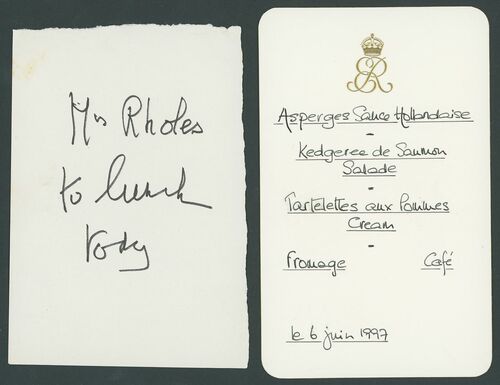 Mrs Rhodes
to lunch
today
ER
Asperges Sauce Hollandaise
-
Kedgeree de Saumon
Salade
-
Tartelettes aux Pommes
Cream
-
Fromage Café
le 6 juin 1997